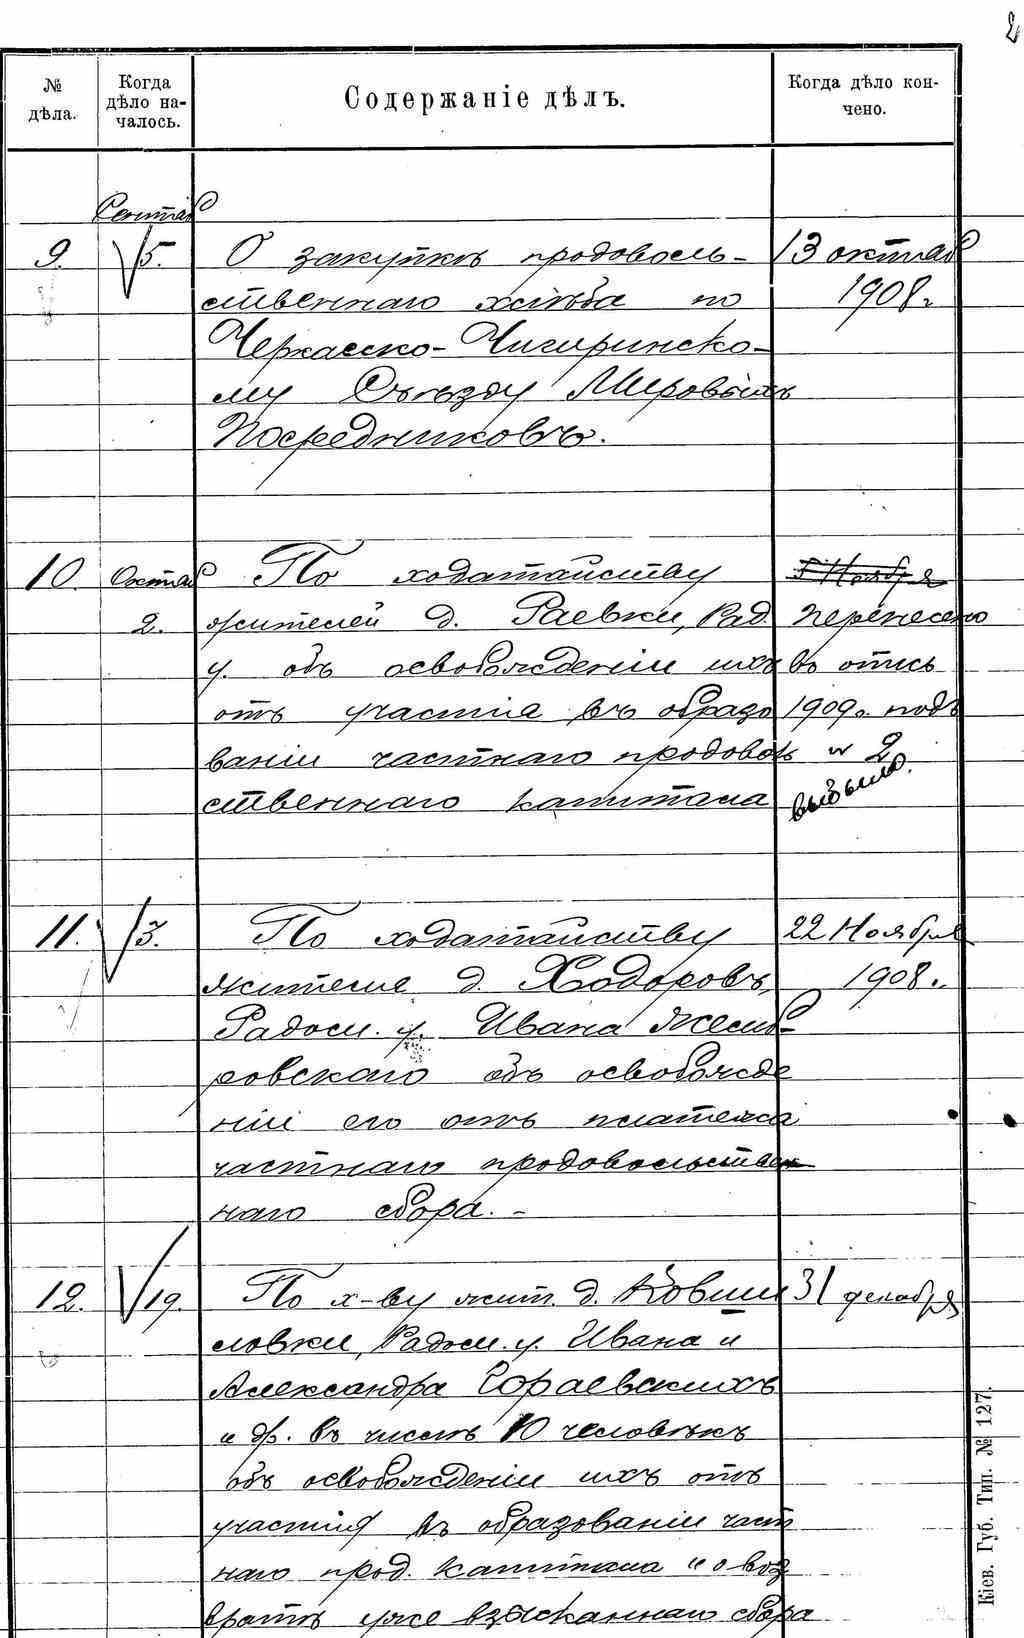 2
№ дѣла.
Когда дѣло началось.
Содержаніе дѣлъ.
Когда дѣло кончено.
Сентяб
9.
5.
О закупкѣ продоволь-
ственнаго хлѣба по
Черкасско-Чигиринско-
му Съѣзду Мировыхъ
Посредниковъ.
13 октяб
1908г
10.
Октяб
2.
По ходатайству
жителей д. Раевки, Рад.
у. объ освобожденіи ихъ
отъ участія въ образо
ваніи частнаго продоволь
ственнаго капитала
5 Ноября
перенесено
въ опись
1909г. подъ
№ 2
выбыло.
11.
3.
По ходатайству
жителя д. Ходоровъ,
Радом. у. Ивана
ровскаго объ освобожде
ніи его отъ платежа
частнаго продовольствен
наго сбора. -
22 Ноября
1908г.
12.
19.
По х-ву жит. д.
ловки, Радом. у. Ивана и
Александра Гораевскихъ
и др. въ числѣ 10 человѣкъ
объ освобожденіи ихъ отъ
участія въ образованіи част
наго прод. капитала и о воз
вратѣ уже взысканнаго сбора
31 декабря
Кіев. Губ. Тип. № 127.